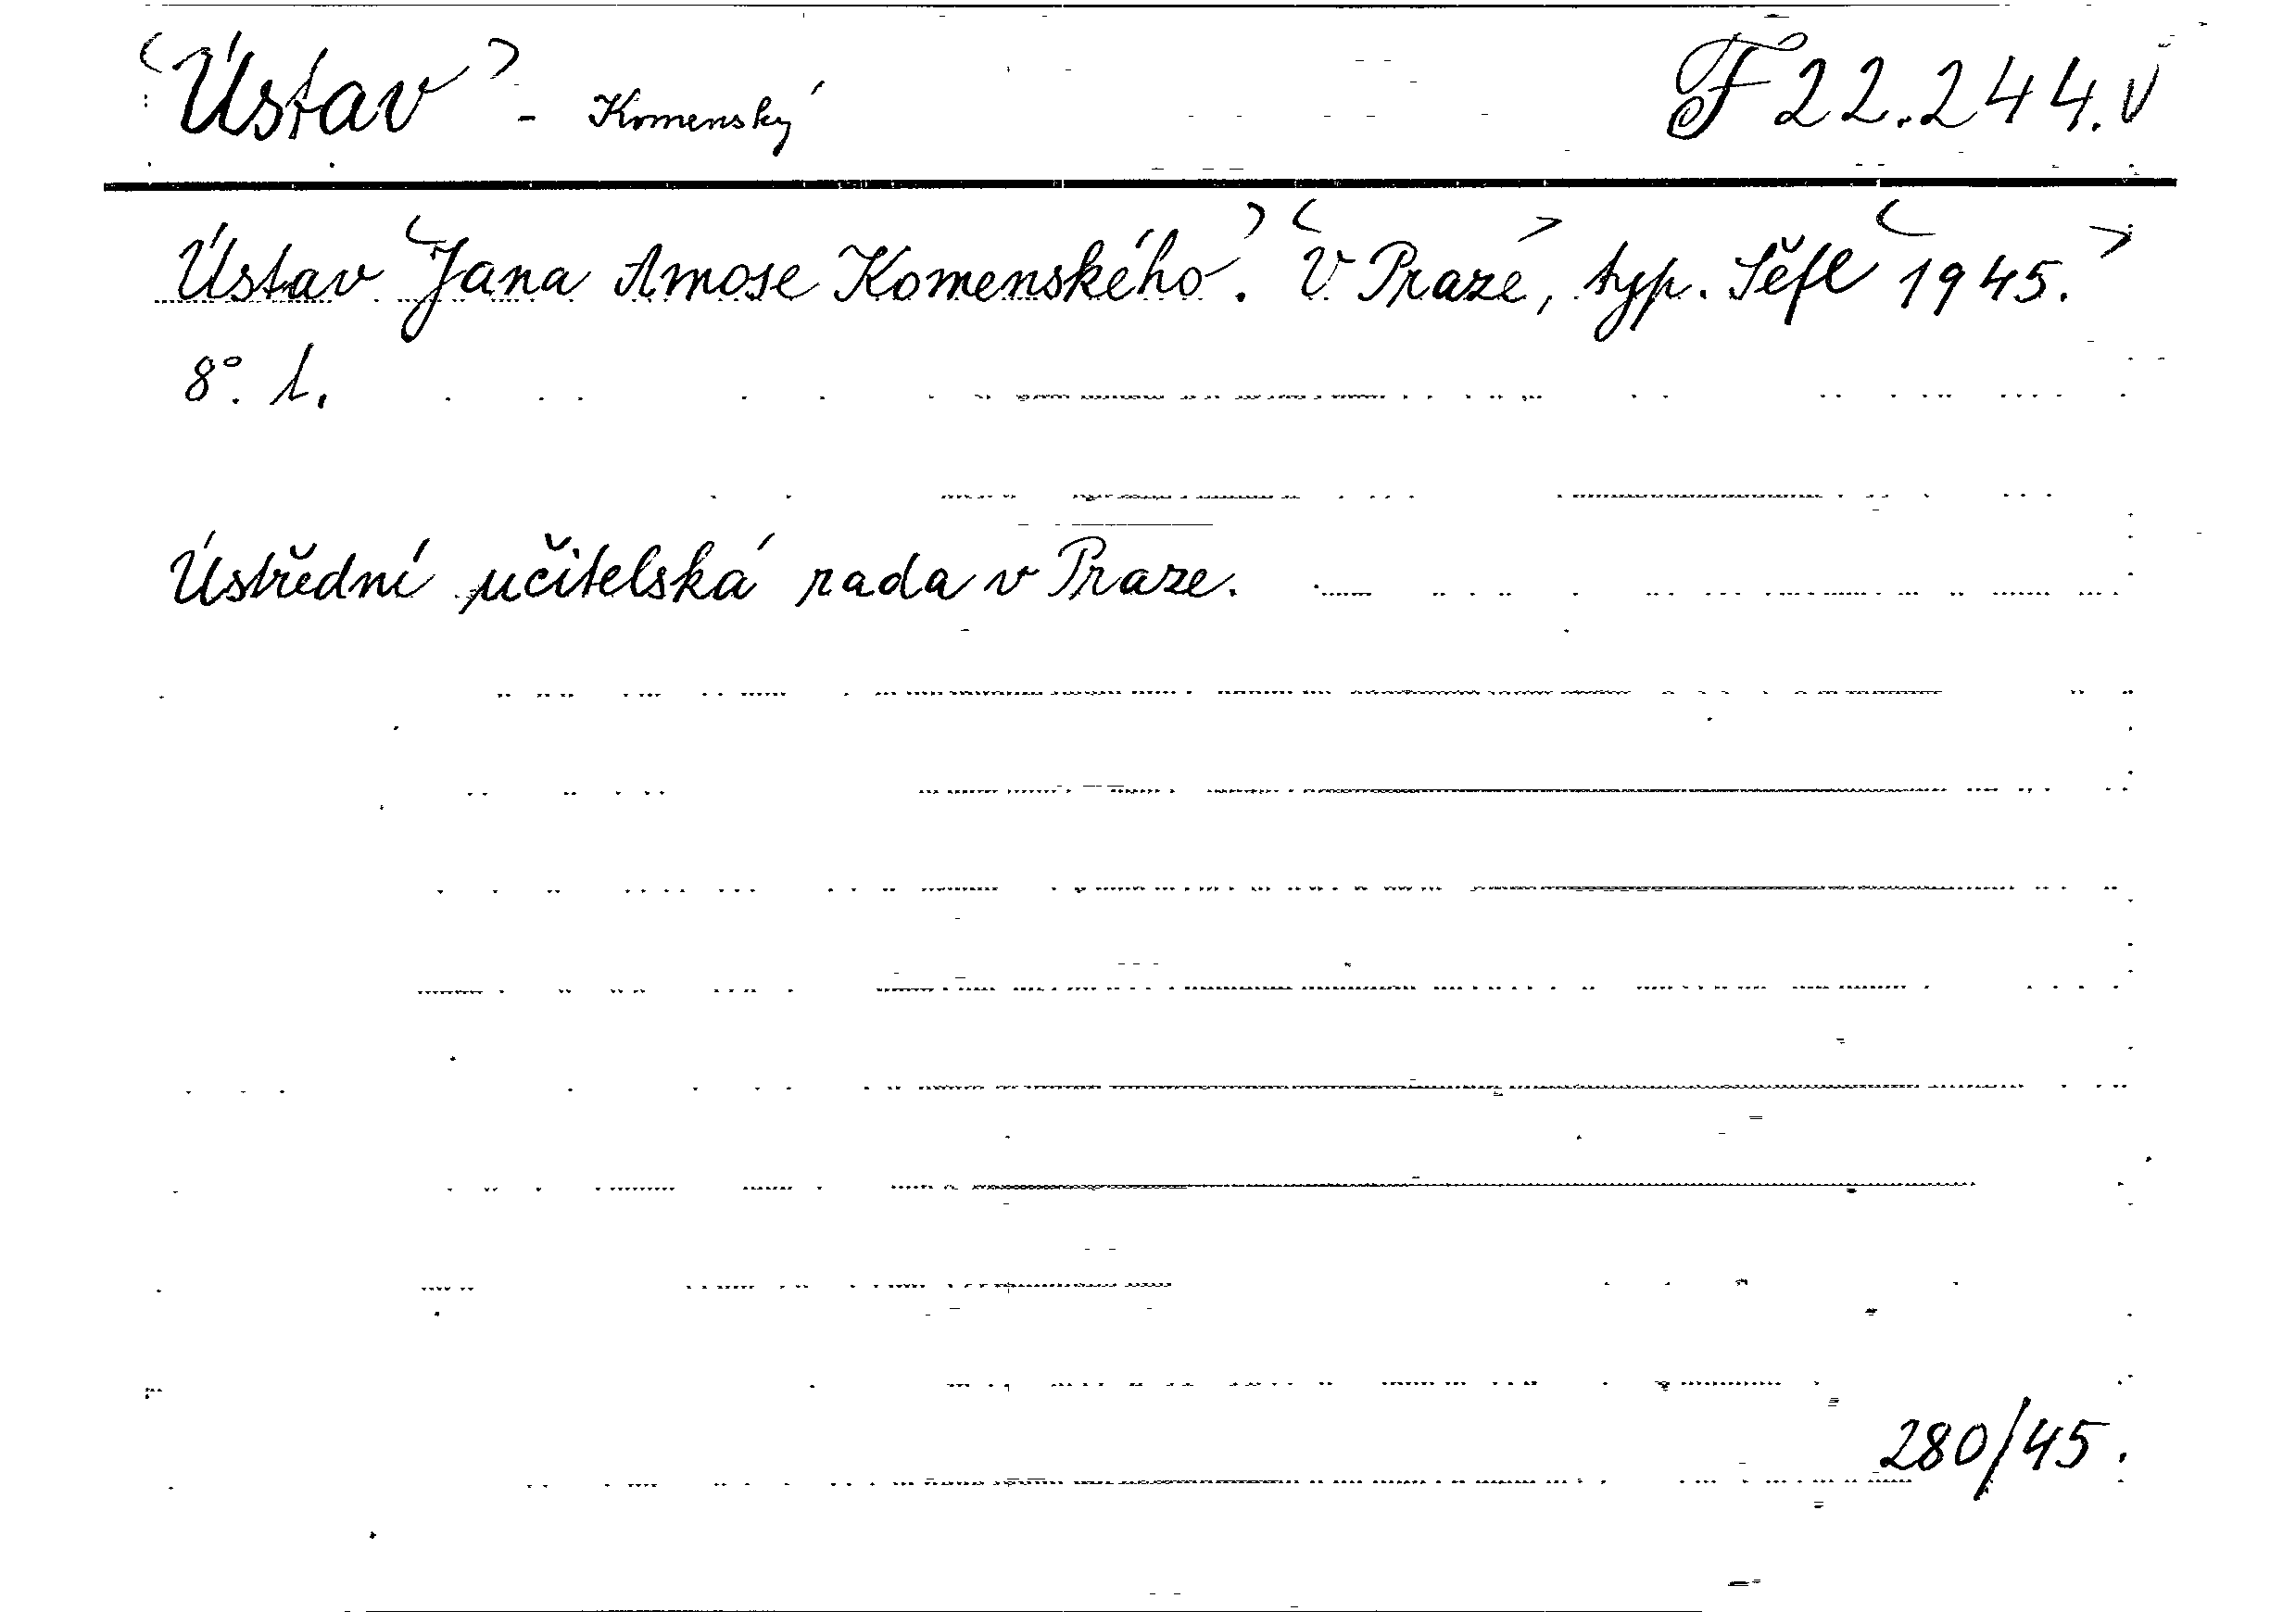 <Ústav> - Komenský F 22.244. V
Ústav <Jana Amose Komenského.> <V Praze,> typ. Šefl <1945.>
8°. 1.
Ústřední učitelská rada v Praze.
280/45.